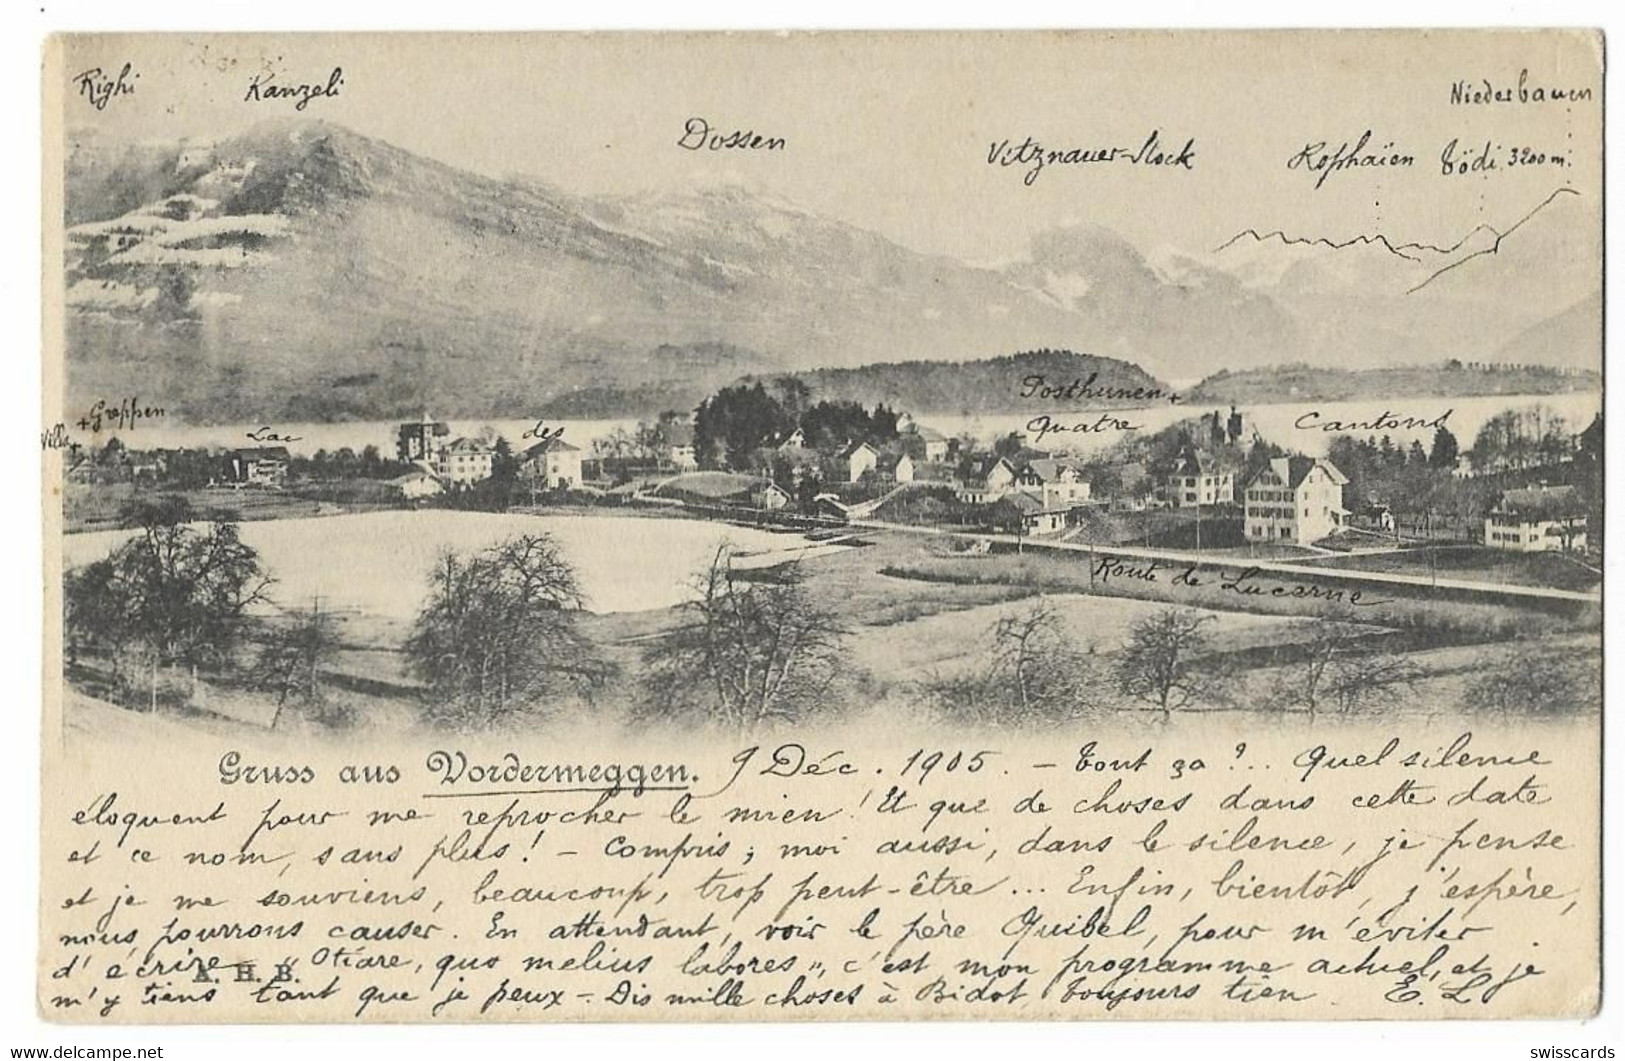 Righi Kanzeli Dossen Vitznauer-Stock Rophaïen Niederbauen
Tödi 3200 m.
+ Greppen
Villa +
Lac des Quatre Cantons
Posthunen +
Route de Lucerne
Gruss aus Vordermeggen. 9 Déc. 1905. – Tout ça ?.. Quel silence
éloquent pour me reprocher le mien ! Et que de choses dans cette date
et ce nom, sans plus ! – Compris ; moi aussi, dans le silence, je pense
et je me souviens, beaucoup, trop peut-être ... Enfin, bientôt, j'espère,
nous pourrons causer. En attendant, voir le père Quibel, pour m'éviter
d'écrire – „Otiare, quo melius labores", c'est mon programme actuel, et je
A. H. B.
m'y tiens tant que je peux –. Dis mille choses à Bidot. Toujours tien. E. L
swisscards
delcampe.net